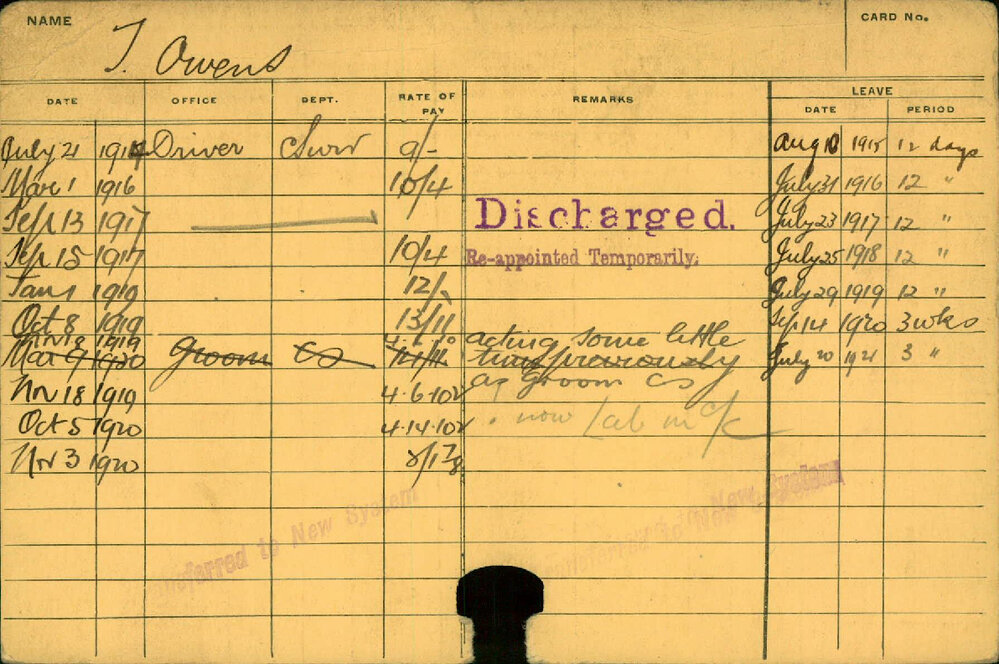 NAME T. Owens CARD No.
DATE OFFICE DEPT. RATE OF PAY REMARKS LEAVE
DATE PERIOD
July 21 1914 Driver 9/- Aug 10 1915 12 days
Mar 1 1916 10/4 July 31 1916 12 "
Sep 13 1917 Discharged. July 23 1917 12 "
Sep 15 1917 10/4 Re-appointed Temporarily. July 25 1918 12 "
Jan 1 1919 12/- July 29 1919 12 "
Oct 8 1919 13/11 Sep 14 1920 3 wks
Nov 18 1919 4.6.10 acting some little
Mar 9 1920 Groom CS time previously July 20 1921 3 "
Nov 18 1919 4.6.10½ as Groom CS
Oct 5 1920 4.14.10½ now Lab in
Nov 3 1920
Transferred to New System
Transferred to New System
New System